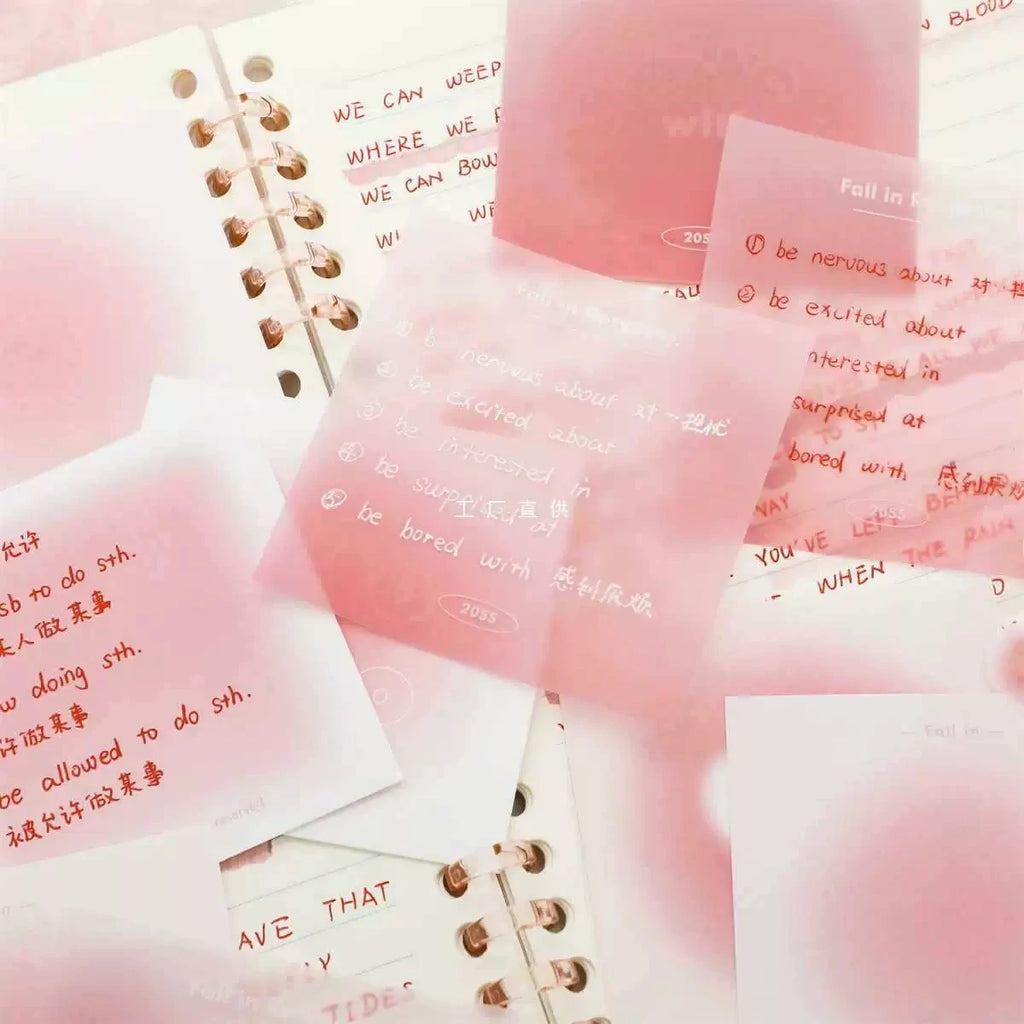 WE CAN WEEP
WHERE WE
WE CAN BOW
WE
BLOOD
2055
Fall in
① be nervous about 对
② be excited about
interested in
surprised at
bored with 感到厌烦
2055
① be nervous about 对一担忧
② be excited about
③ be interested in
④ be surprised at
⑤ be bored with 感到厌烦
2055
工厂直供
YOU'VE LEFT
WHEN THE RAIN
允许
sb to do sth.
某人做某事
doing sth.
许做某事
be allowed to do sth.
被允许做某事
reserved
Fall in
AVE THAT
TIDES
Fall in